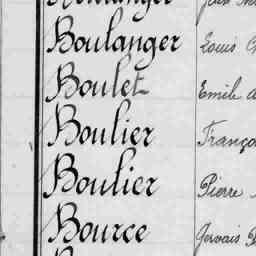 Boulanger Louis
Boulet Emile
Boulier
Boulier Pierre
Bource Gervais